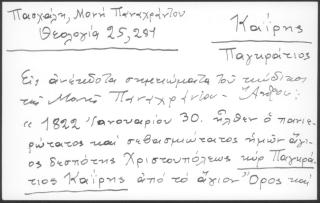 Πασχάλη, Μονή Παναχράντου
Θεολογία 25, 291
Καΐρης
Παγκράτιος
Εἰς ἀνέκδοτα σημειώματα τοῦ κώδικος
τῆς Μονῆς Παναχράντου - Ἄνδρου:
"1822 Ἰανουαρίου 30. ἦλθεν ὁ πανιε-
ρώτατος καὶ σεβασμιώτατος ἡμῶν ἅγι-
ος δεσπότης Χριστουπόλεως κύρ Παγκρά-
τιος Καΐρης ἀπὸ τὸ ἅγιον Ὄρος καὶ